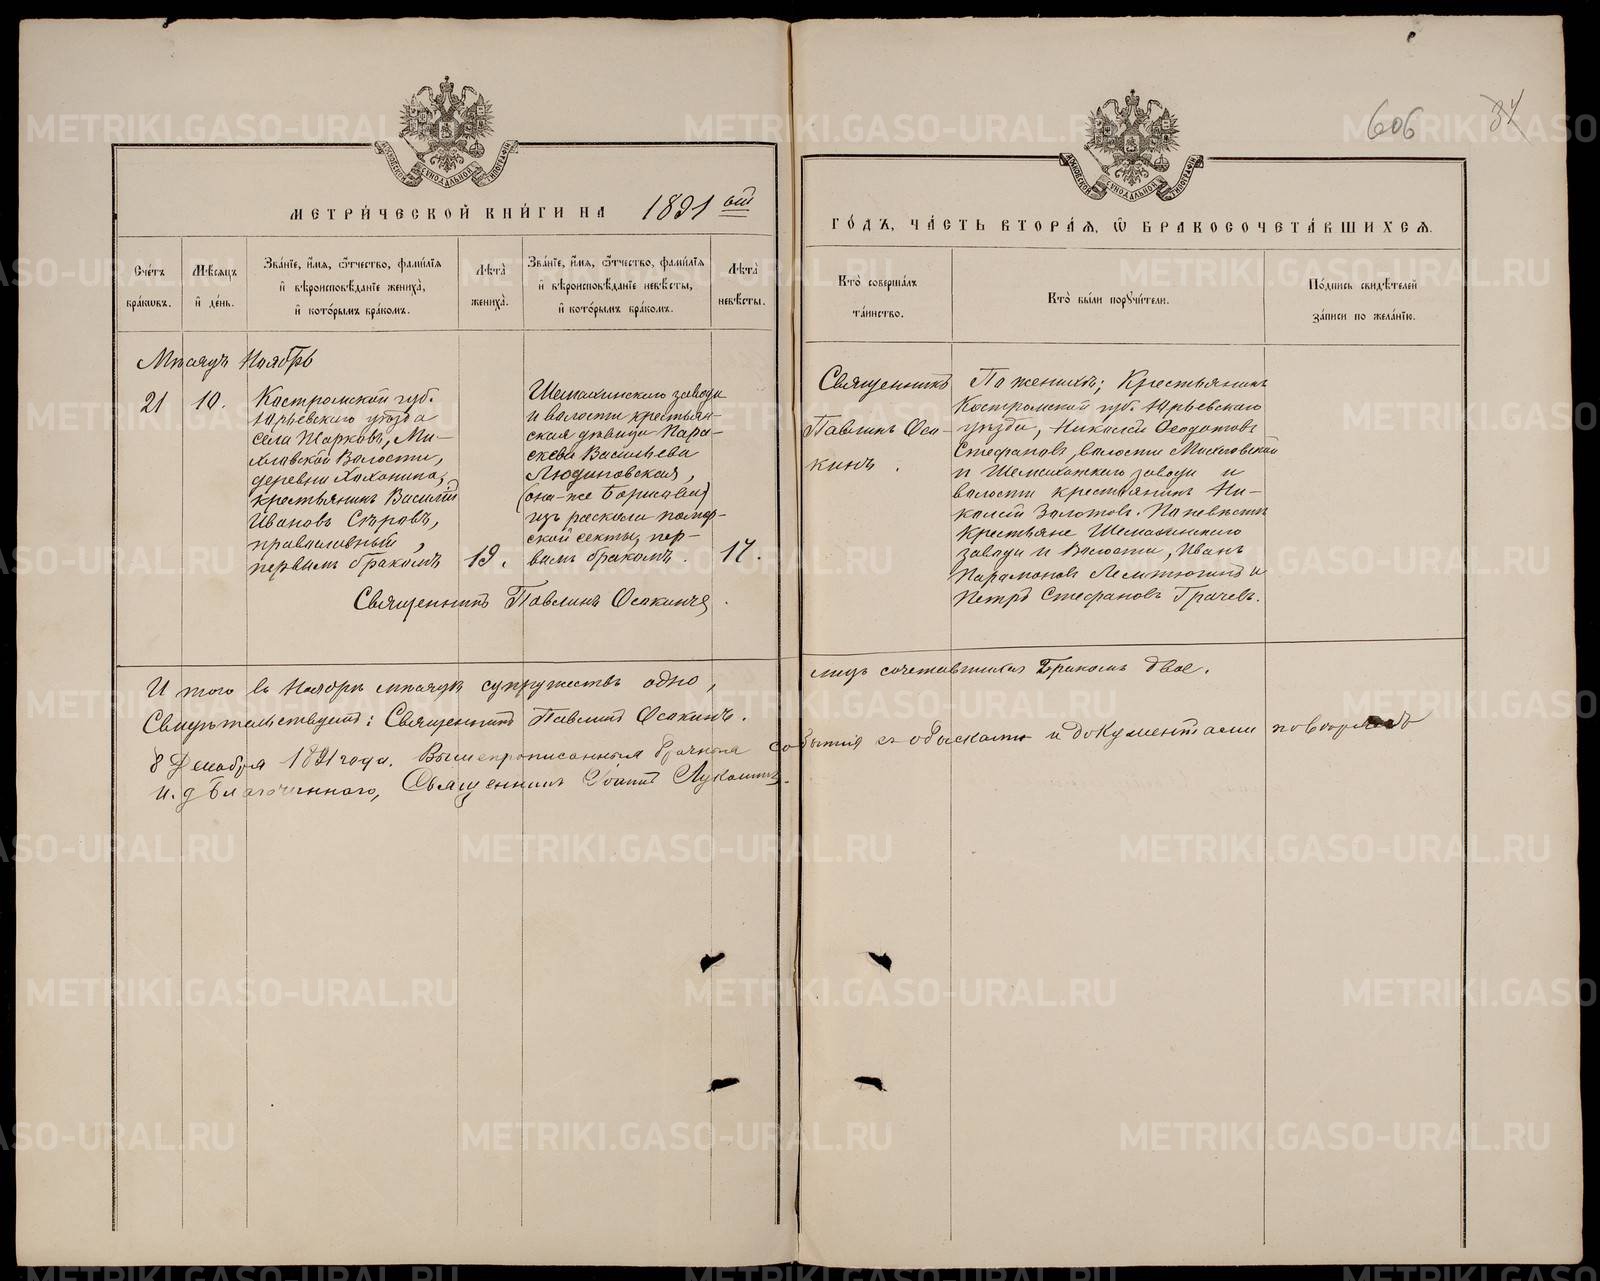 606 37
МОСКОВСКОЙ СѴНОДАЛЬНОЙ ТИПОГРАФІИ
МОСКОВСКОЙ СѴНОДАЛЬНОЙ ТИПОГРАФІИ
МЕТРИ́ЧЕСКОЙ КНИ́ГИ НА 1891 ой
ГО́ДЪ, ЧА́СТЬ ВТОРА́Я, Ѿ БРАКОСОЧЕТА́ВШИХСЯ.
Сче́тъ
бра́ковъ.
Мѣ́сяцъ
и҆ де́нь.
Зва́нїе, и҆́мя, ѻ҆́тчество, фами́лїя
и҆ вѣроисповѣ́данїе жениха̀,
и҆ кото́рымъ бра́комъ.
Лѣ́та
жениха̀.
Зва́нїе, и҆́мя, ѻ҆́тчество, фами́лїя
и҆ вѣроисповѣ́данїе невѣ́сты,
и҆ кото́рымъ бра́комъ.
Лѣ́та
невѣ́сты.
Кто̀ соверша́лъ
та́инство.
Кто̀ бы́ли поручи́тели.
По́дпись свидѣ́телей
за́писи по жела́нїю.
Мѣсяцъ Ноябрь
21
10.
Костромской губ.
Юрьевскаго уѣзда
села Жарковъ, Ми-
хловской Волости,
деревни Хахонина,
крестьянинъ Василій
Ивановъ Сѣровъ,
православный,
первымъ бракомъ
19.
Шемахинскаго завода
и волости крестьян-
ская дѣвица Пара-
скева Васильева
Людиновская,
(она-же Борисова)
изъ раскола помор-
ской секты, пер-
вымъ бракомъ.
17.
Священникъ Павлинъ Осокинъ.
Священникъ
Павлинъ Осо-
кинъ.
По женихѣ; Крестьянинъ
Костромской губ. Юрьевскаго
уѣзда, Николай Ѳеодотовъ
Стефановъ, волости
и Шемахинскаго завода и
волости крестьянинъ Ни-
колай Золотовъ. По невѣстѣ
Крестьяне Шемахинскаго
завода и Волости, Иванъ
Парамоновъ и
Петръ Стефановъ Грачевъ.
И того въ Ноябрѣ мѣсяцѣ супружествъ одно,
лицъ сочетавшихся Бракомъ двое.
Свидѣтельствуетъ: Священникъ Павлинъ Осокинъ.
8 Декабря 1891 года. Вышепрописанныя брачныя событія съ обысками и документами повѣрялъ
и. д. благочиннаго, Священникъ Іоаннъ Лукошинъ.